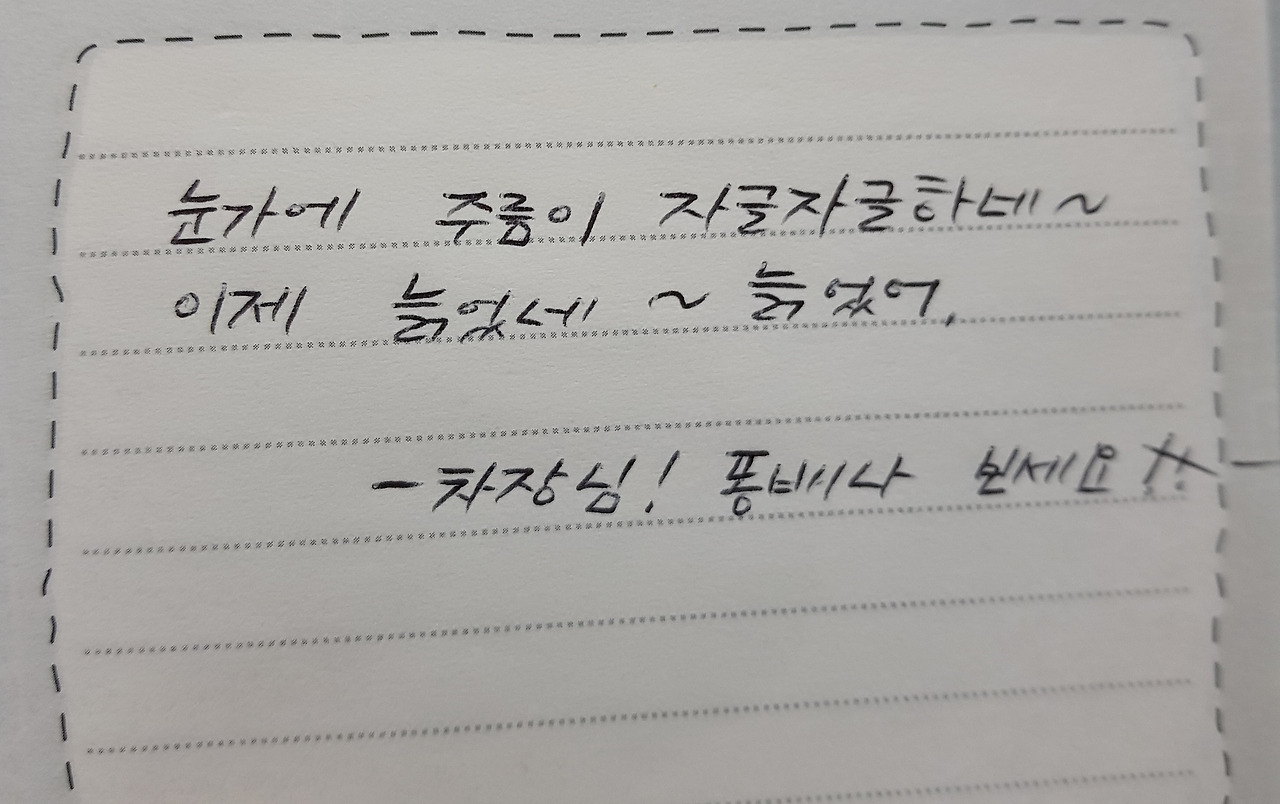 눈가에 주름이 자글자글하네~
이제 늙었네~ 늙었어.
- 차장님! 퐁비나 뵌세요!!